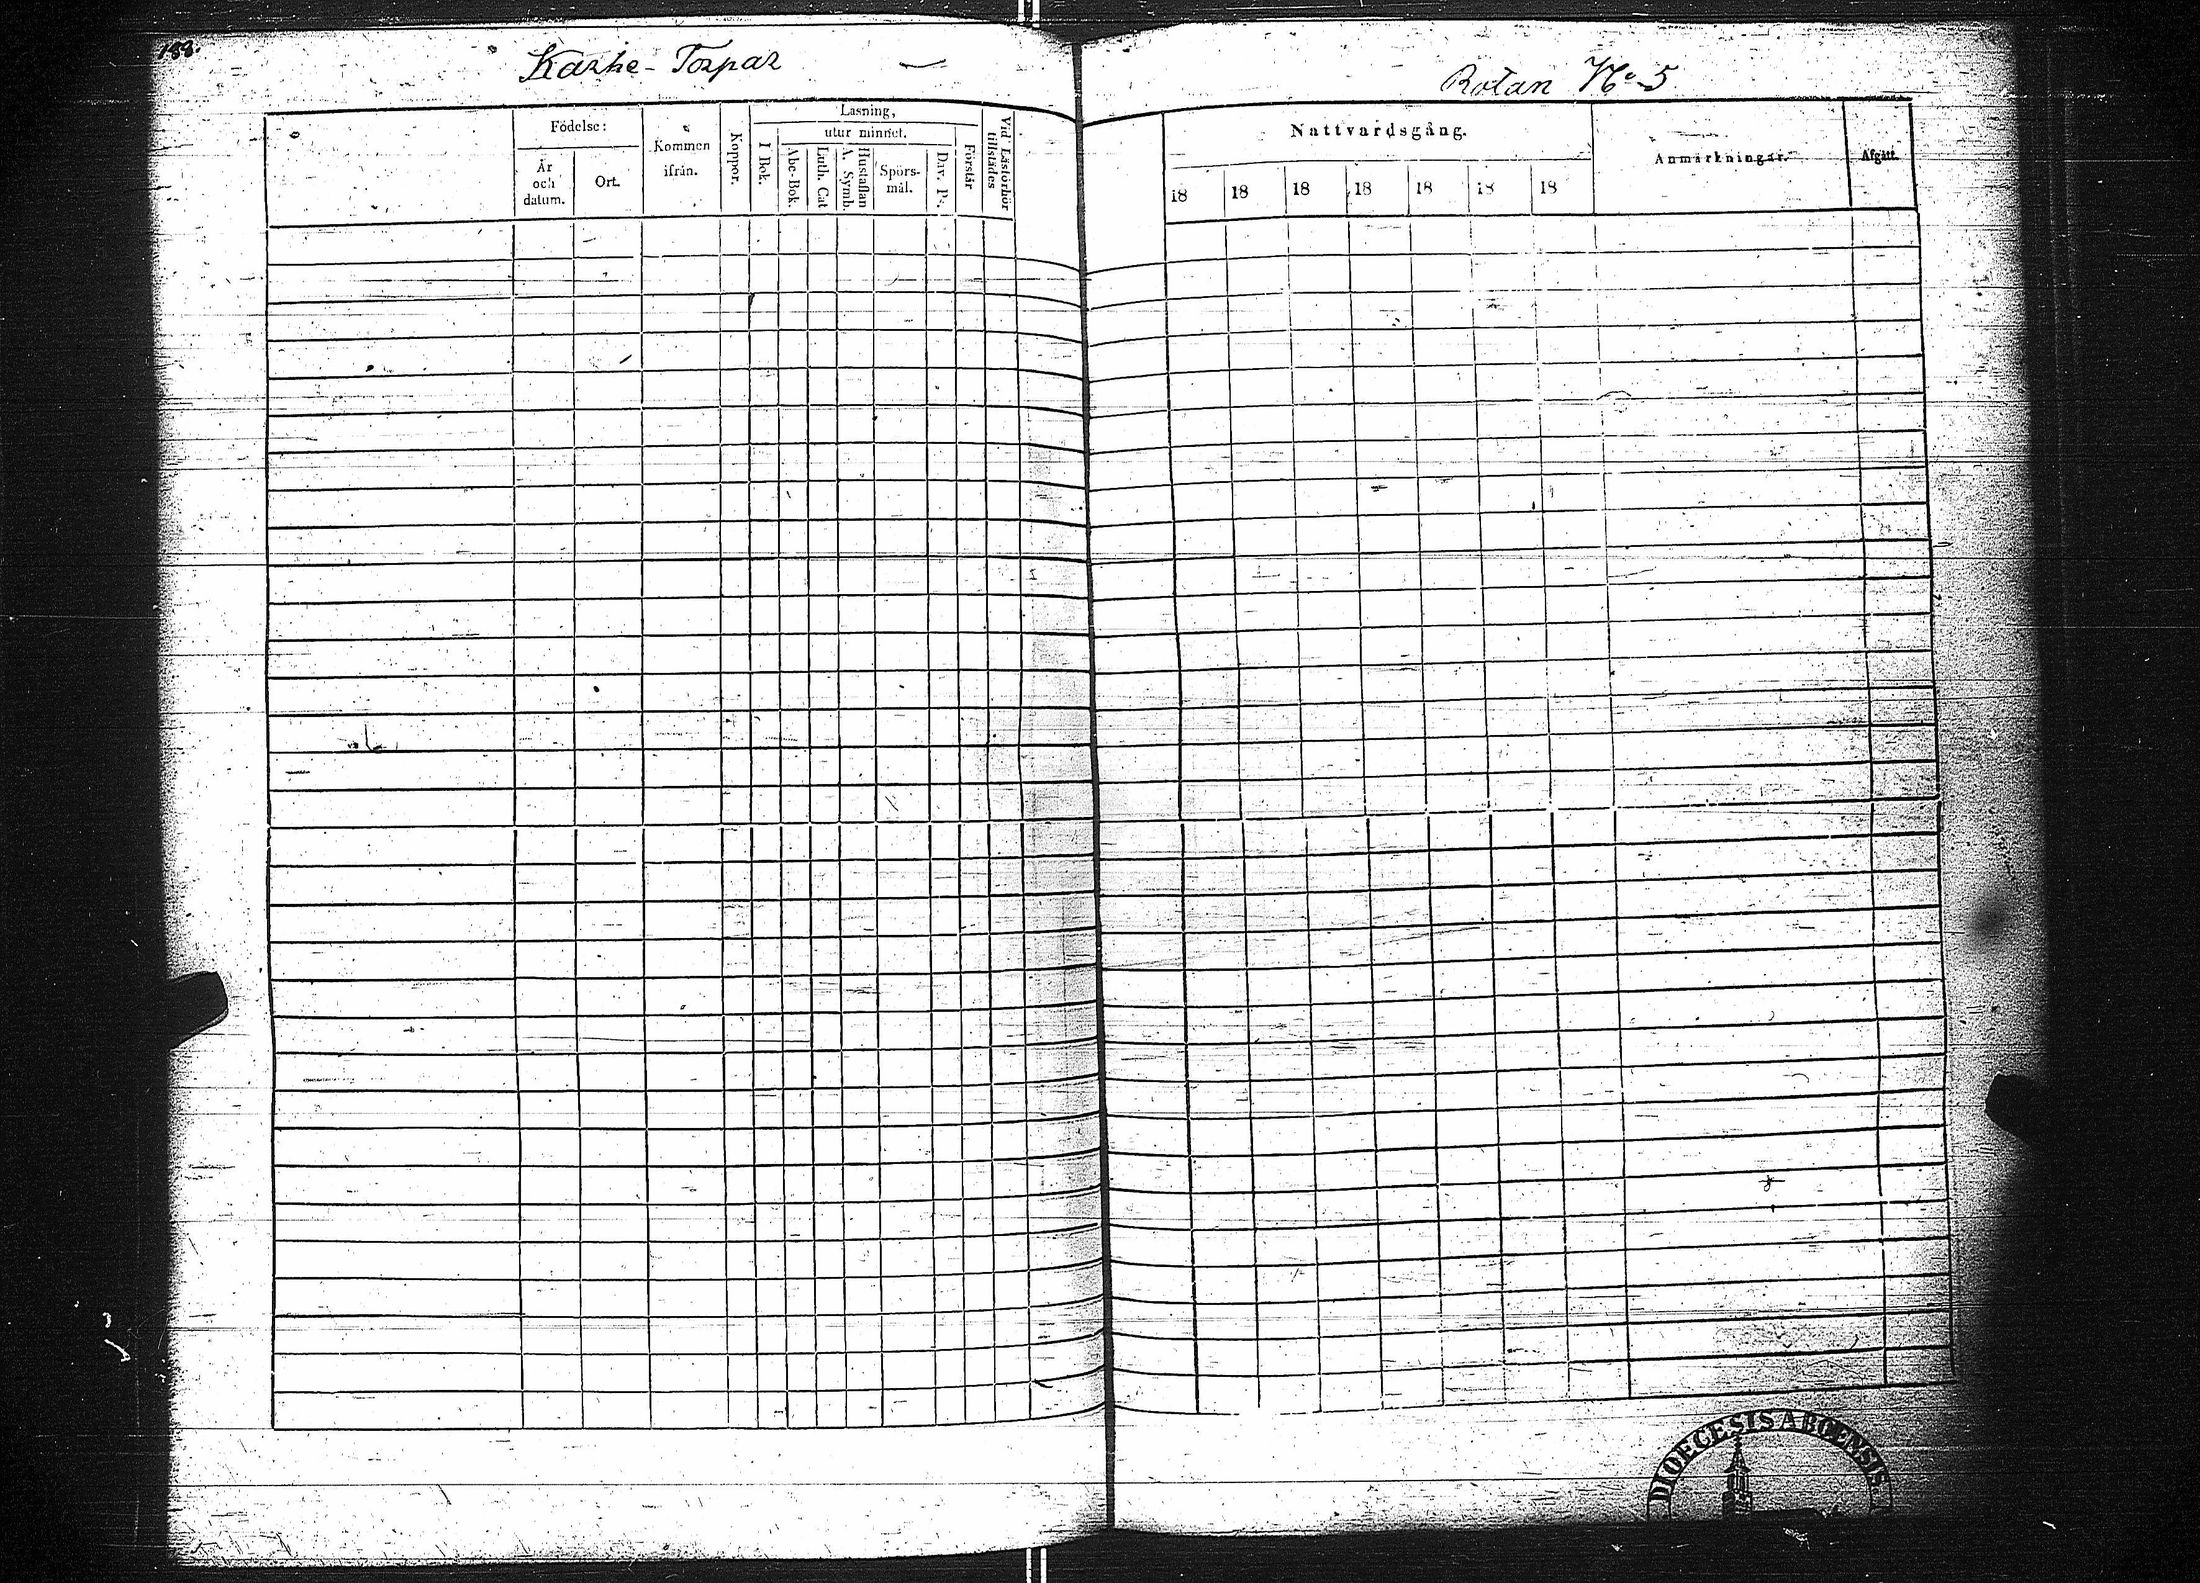 188.
Karhe-Torpar
Rotan No 5
Födelse:
År
och
datum.
Ort.
Kommen
ifrån.
Koppor.
Läsning,
utur minnet.
I Bok.
Abc-Bok.
Luth. Cat
Hustaflan
A. Symb.
Spörs-
mål.
Dav. Ps.
Förstår
Vid Läsförhör
tillstädes
Nattvardsgång.
18 18 18 18 18 18 18
Anmärkningar.
Afgått.
DIOECESIS ABOENSIS